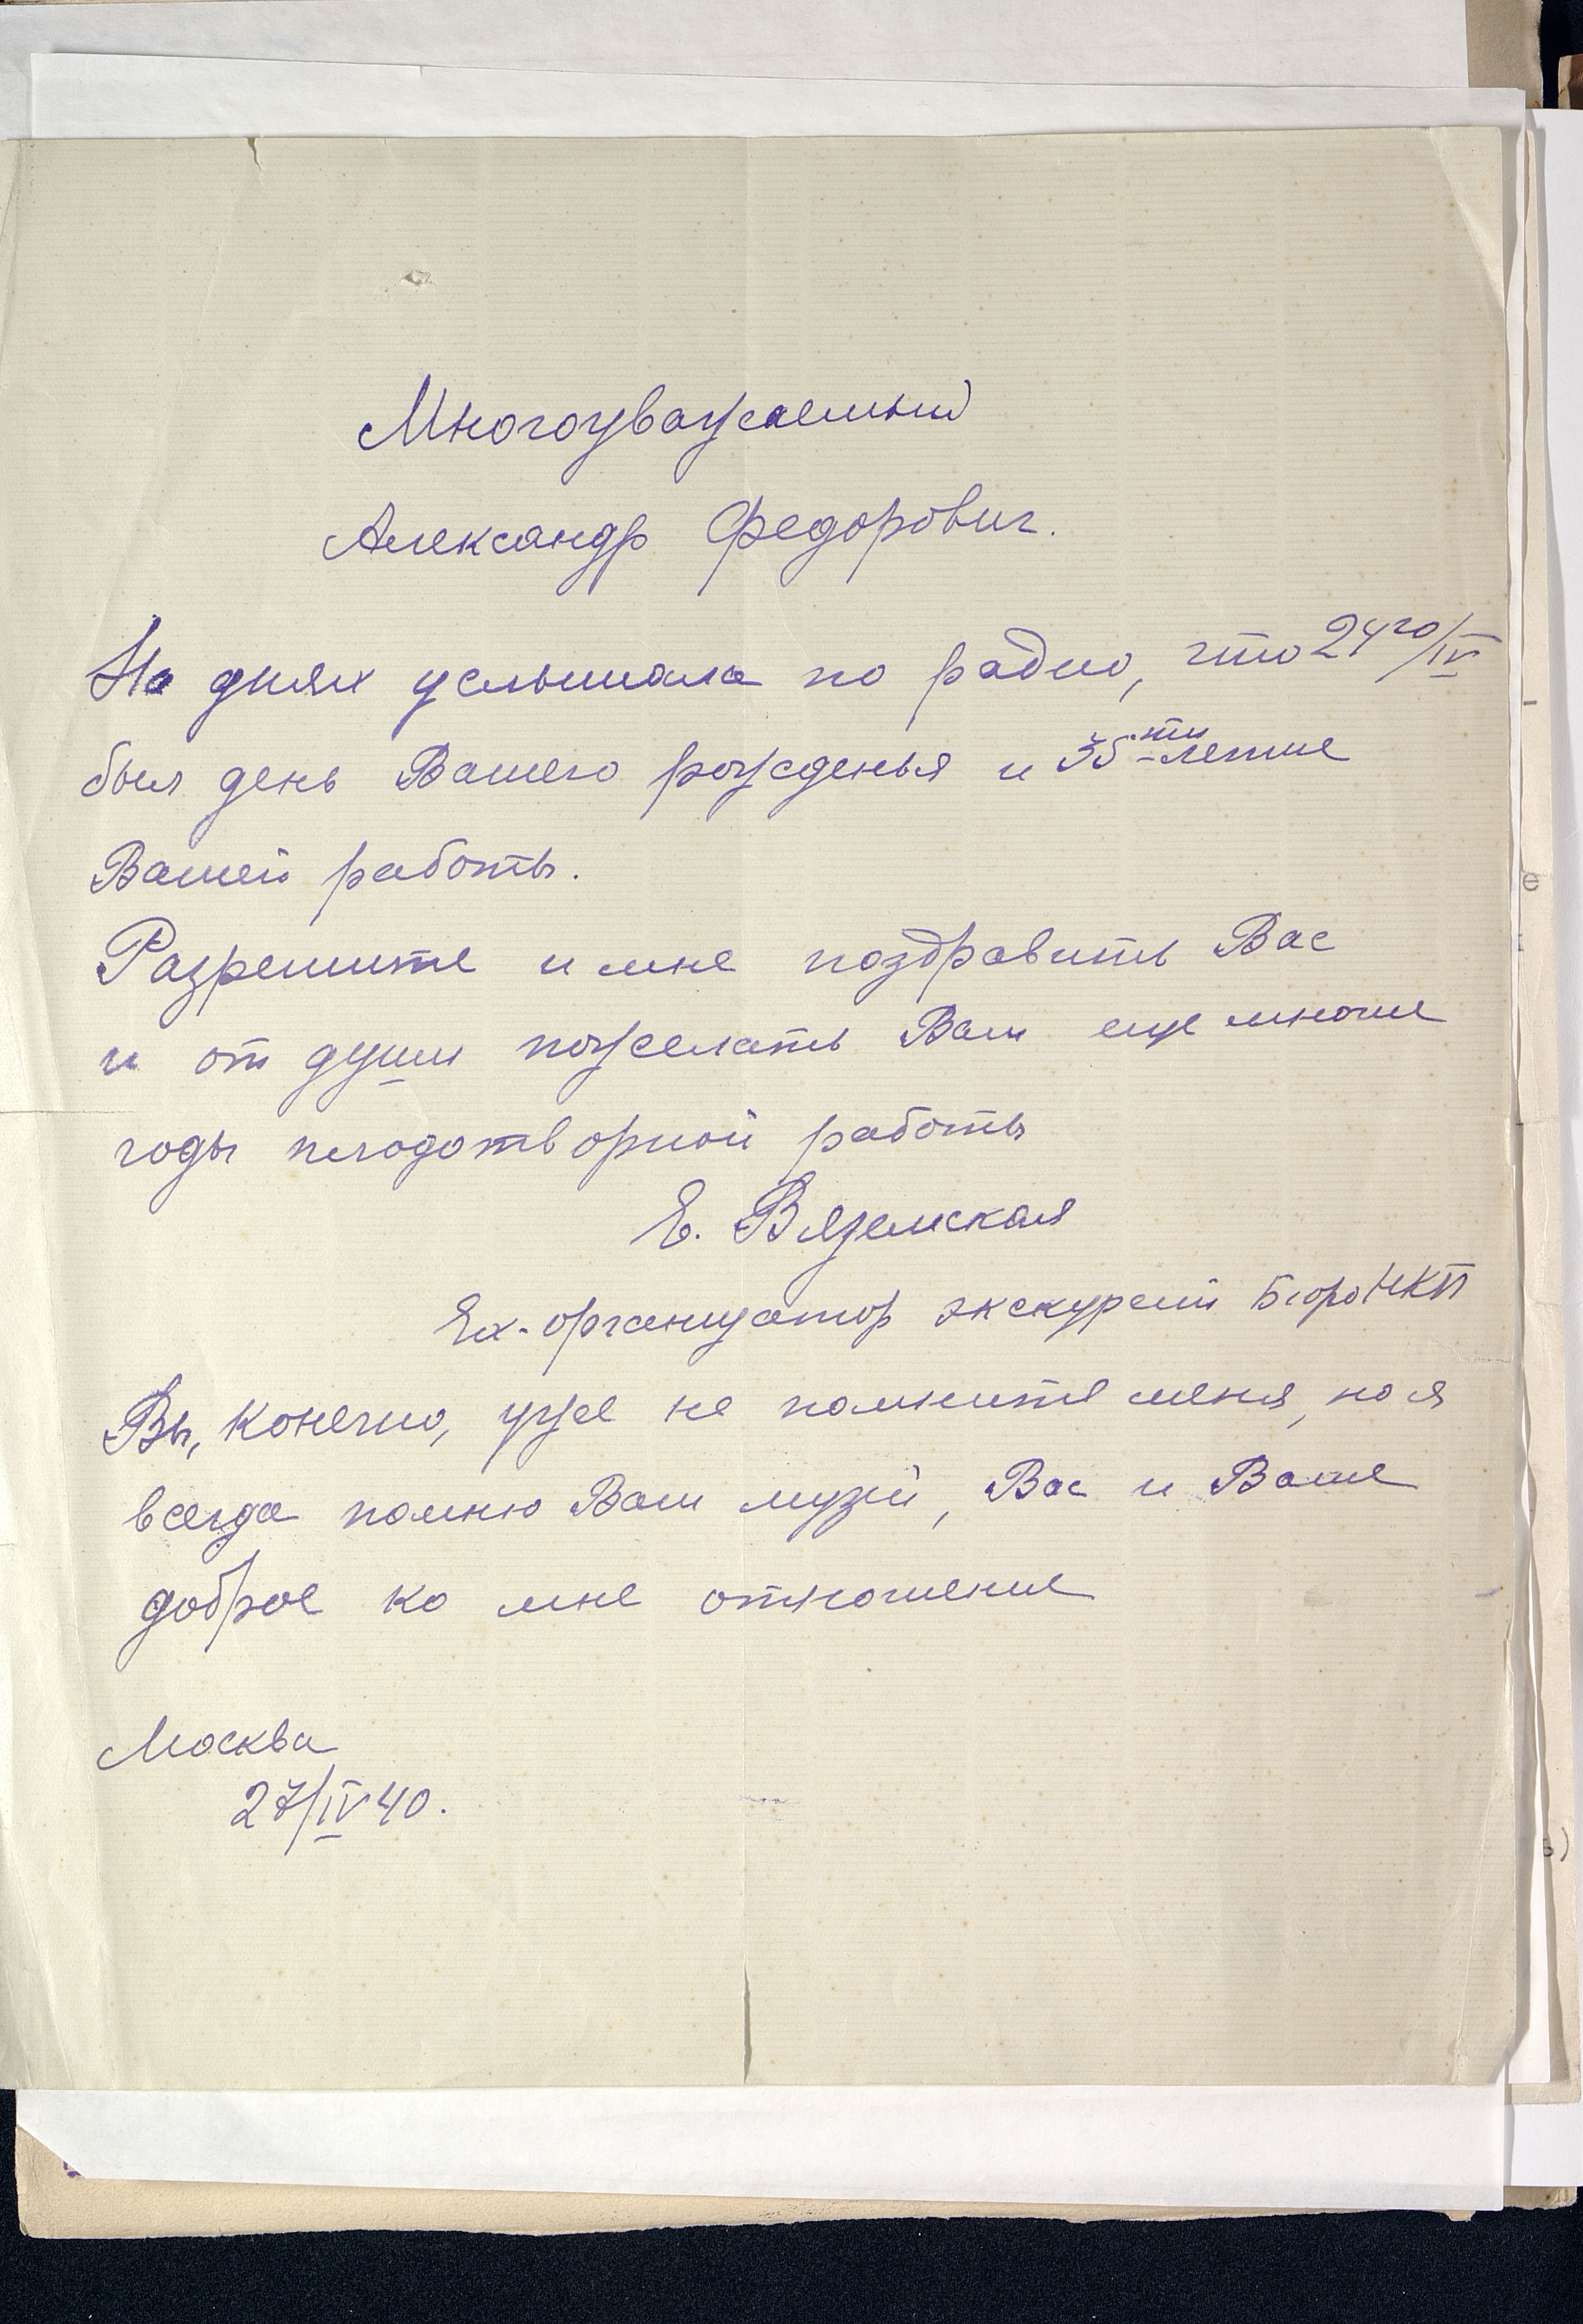 Многоуважаемый
Александр Федорович.
На днях услышала по радио, что 24го/IV
был день Вашего рожденья и 35-ти-летие
Вашей работы.
Разрешите и мне поздравить Вас
и от души пожелать Вам еще многие
годы плодотворной работы
Е. Вяземская
Ex-организатор экскурсий Бюро НКП
Вы, конечно, уже не помните меня, но я
всегда помню Ваш музей, Вас и Ваше
доброе ко мне отношение
Москва
27/IV 40.